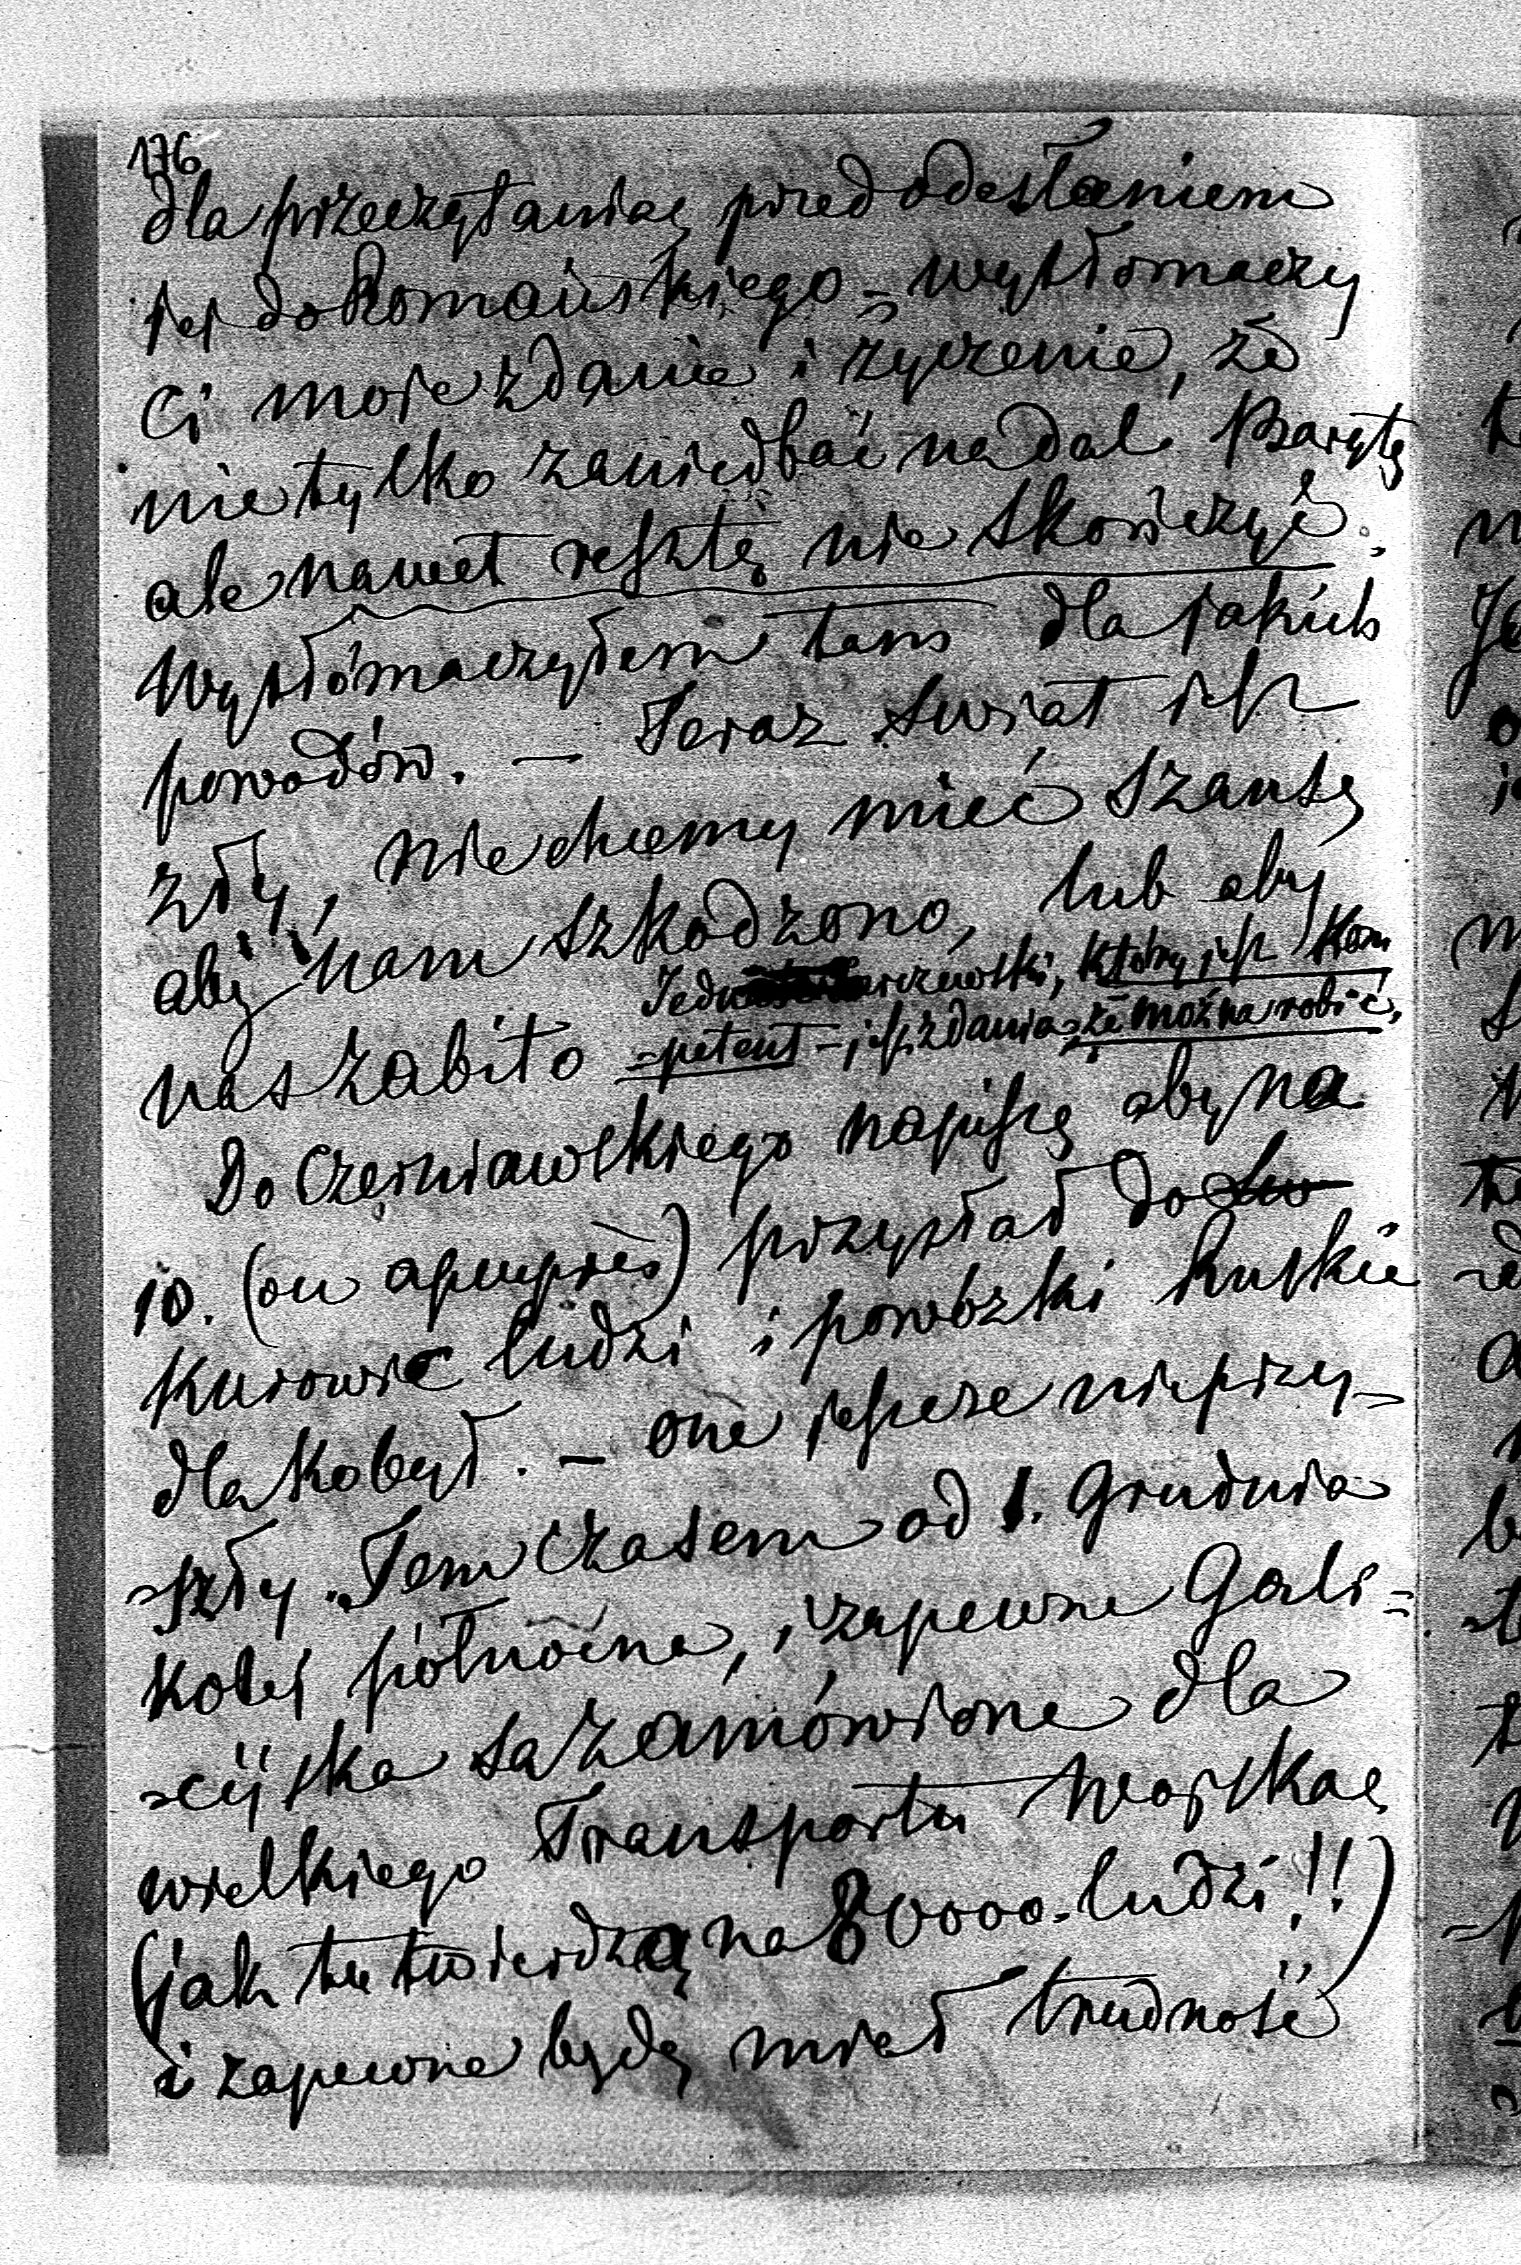 176
dla przeczytania, przed odesłaniem
jej do Romańskiego – wytłomaczy
Ci moje zdanie i życzenie, że
nie tylko zaniedbać na dal Barytę
ale nawet resztę nie skończyć.
Wytłómaczyłem tam dla jakich
powodów. — Teraz świat jest
zły, nie chcemy mieć szansę
aby nam szkodzono, lub aby
nas zabito
który jest Kom
-petent – jest zdania, że można robić,
Do Czerniawskiego napiszę aby na
10. (ou apeuprès) przysłał do
Kurowic ludzi i powózki Ruskie
dla kobył. – one jeszcze nie przy-
-szły. Tem czasem od 1. Grudnia
Kolej północna, i zapewne Gali=
=cijska są zamówione dla
wielkiego Transportu wojska
(jak tu twierdzą na 80000. ludzi!!)
i zapewne będę miał trudność